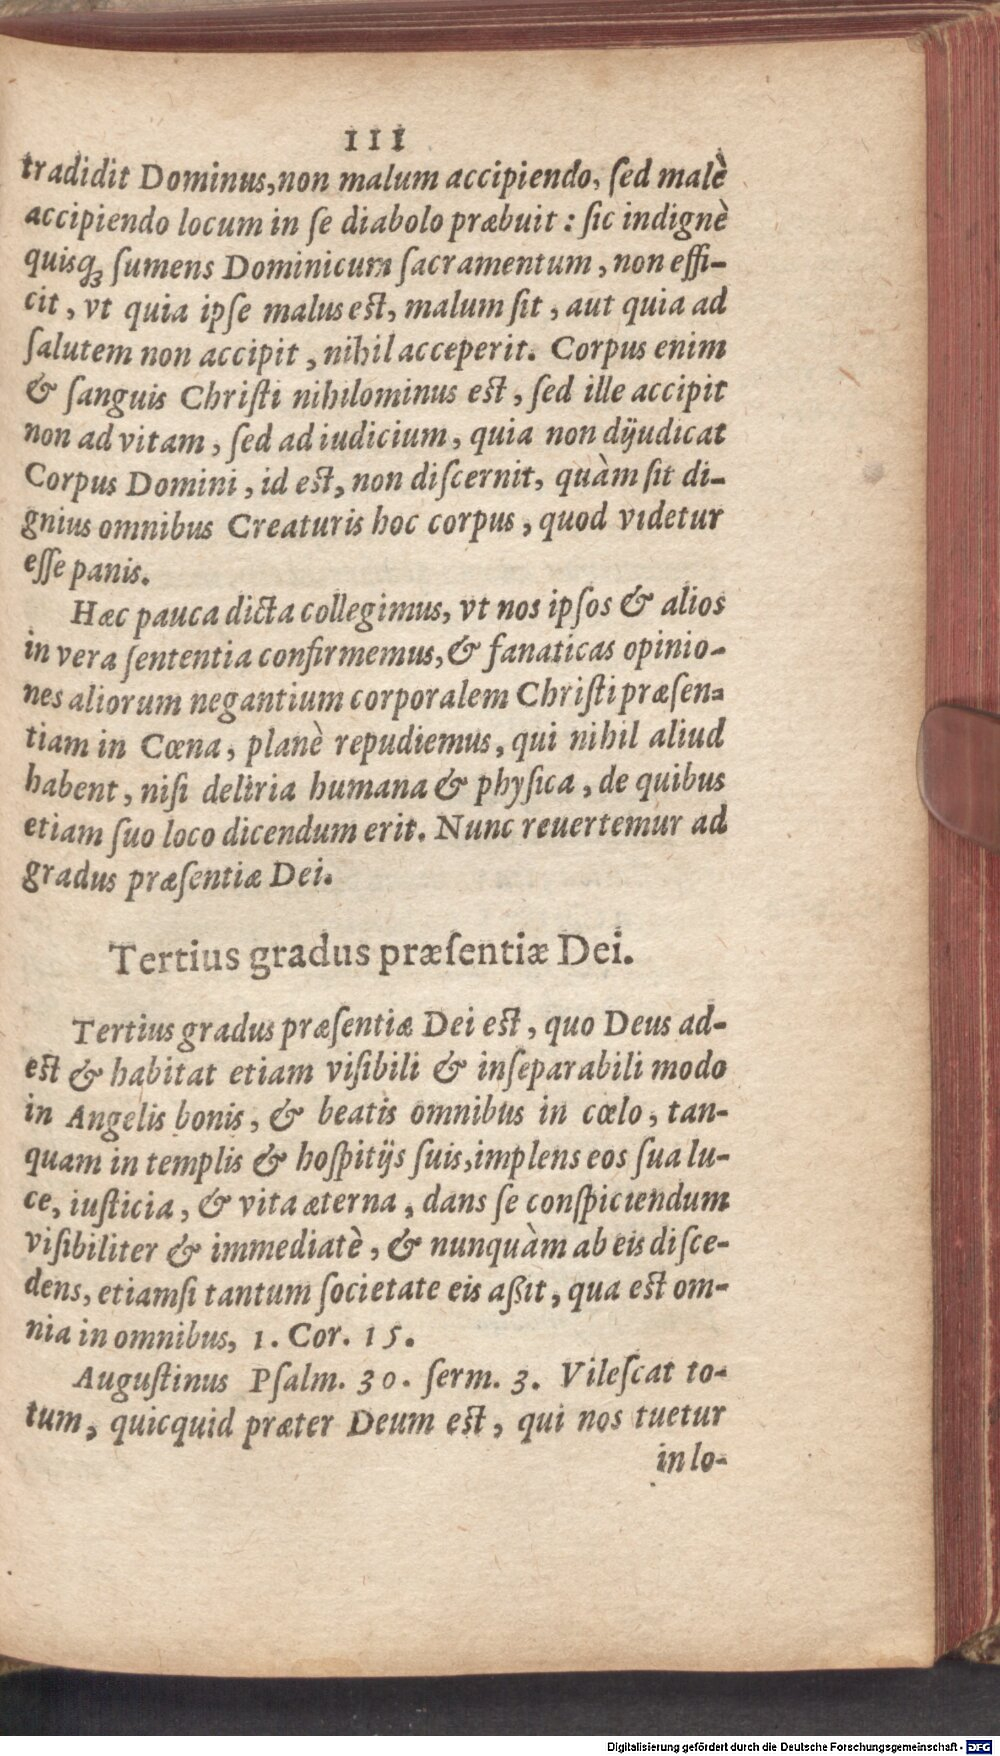 111
tradidit Dominus, non malum accipiendo, ſed malè
accipiendo locum in ſe diabolo præbuit : ſic indignè
quisqꝫ ſumens Dominicum ſacramentum, non effi-
cit, vt quia ipſe malus est, malum ſit, aut quia ad
ſalutem non accipit, nihil acceperit. Corpus enim
& ſanguis Chriſti nihilominus est, ſed ille accipit
non ad vitam, ſed ad iudicium, quia non dijudicat
Corpus Domini, id est, non diſcernit, quàm ſit di-
gnius omnibus Creaturis hoc corpus, quod videtur
eſſe panis.
Hæc pauca dicta collegimus, vt nos ipſos & alios
in vera ſententia confirmemus, & fanaticas opinio-
nes aliorum negantium corporalem Chriſti præſen-
tiam in Cœna, planè repudiemus, qui nihil aliud
habent, niſi deliria humana & phyſica, de quibus
etiam ſuo loco dicendum erit. Nunc reuertemur ad
gradus præſentiæ Dei.
Tertius gradus præſentiæ Dei.
Tertius gradus præſentiæ Dei est, quo Deus ad-
est & habitat etiam viſibili & inſeparabili modo
in Angelis bonis, & beatis omnibus in cœlo, tan-
quam in templis & hoſpitijs ſuis, implens eos ſua lu-
ce, iuſticia, & vita æterna, dans ſe conſpiciendum
viſibiliter & immediatè, & nunquàm ab eis diſce-
dens, etiamſi tantum ſocietate eis aßit, qua est om-
nia in omnibus, 1. Cor. 15.
Auguſtinus Pſalm. 30. ſerm. 3. Vileſcat to-
tum, quicquid præter Deum est, qui nos tuetur
in lo-
Digitalisierung gefördert durch die Deutsche Forschungsgemeinschaft - DFG